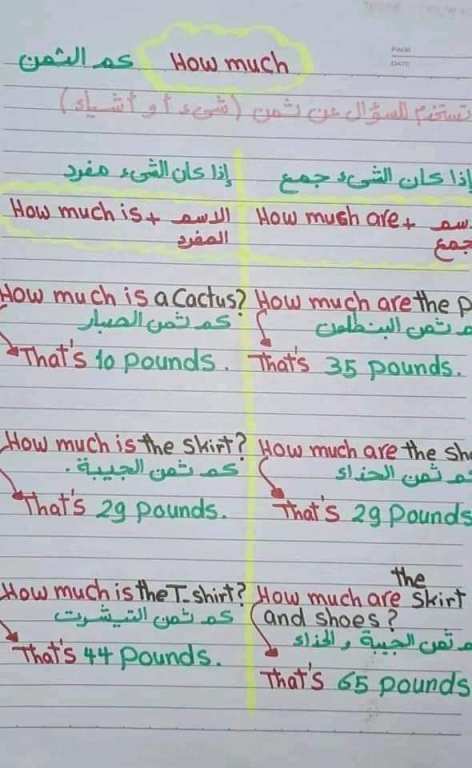 كم الثمن How much
PAGE
DATE
تستخدم للسؤال عن ثمن (شيء أو أشياء)
إذا كان الشيء مفرد
How much is + الاسم
المفرد
How much is a Cactus?
كم ثمن الصبار
That's 10 pounds.
How much is the skirt?
كم ثمن الجيبة.
That's 29 pounds.
How much is the T-shirt?
كم ثمن التيشرت
That's 44 pounds.
إذا كان الشيء جمع
How mush are +
جمع
How much are the
ثمن البنطلون
That's 35 pounds.
How much are the
ثمن الحذاء
That's 29 pounds
the
How much are skirt
and shoes?
ثمن الجيبة والحذاء
That's 65 pounds